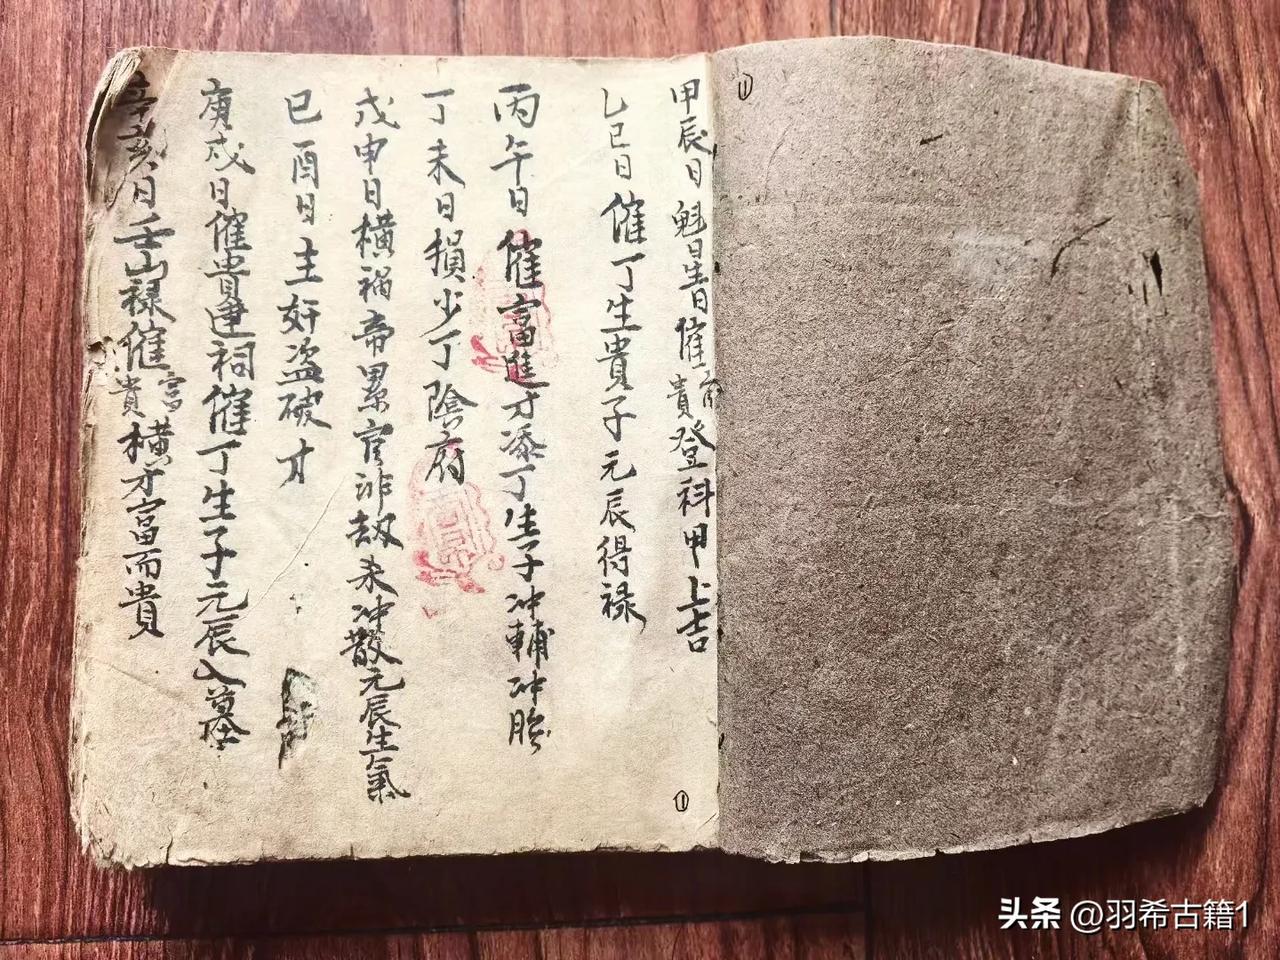 ①
甲辰日魁星日催富貴登科甲上吉
乙巳日催丁生貴子元辰得祿
丙午日催富進才添丁生子冲輔冲胎
丁未日損少丁陰府
戊申日横禍帝累官非劫未冲散元辰生氣
巳酉日主奸盗破才
庚戌日催貴建祠催丁生子元辰入墓
辛亥日壬山禄催富貴横才富而貴
①
头条 @羽希古籍1